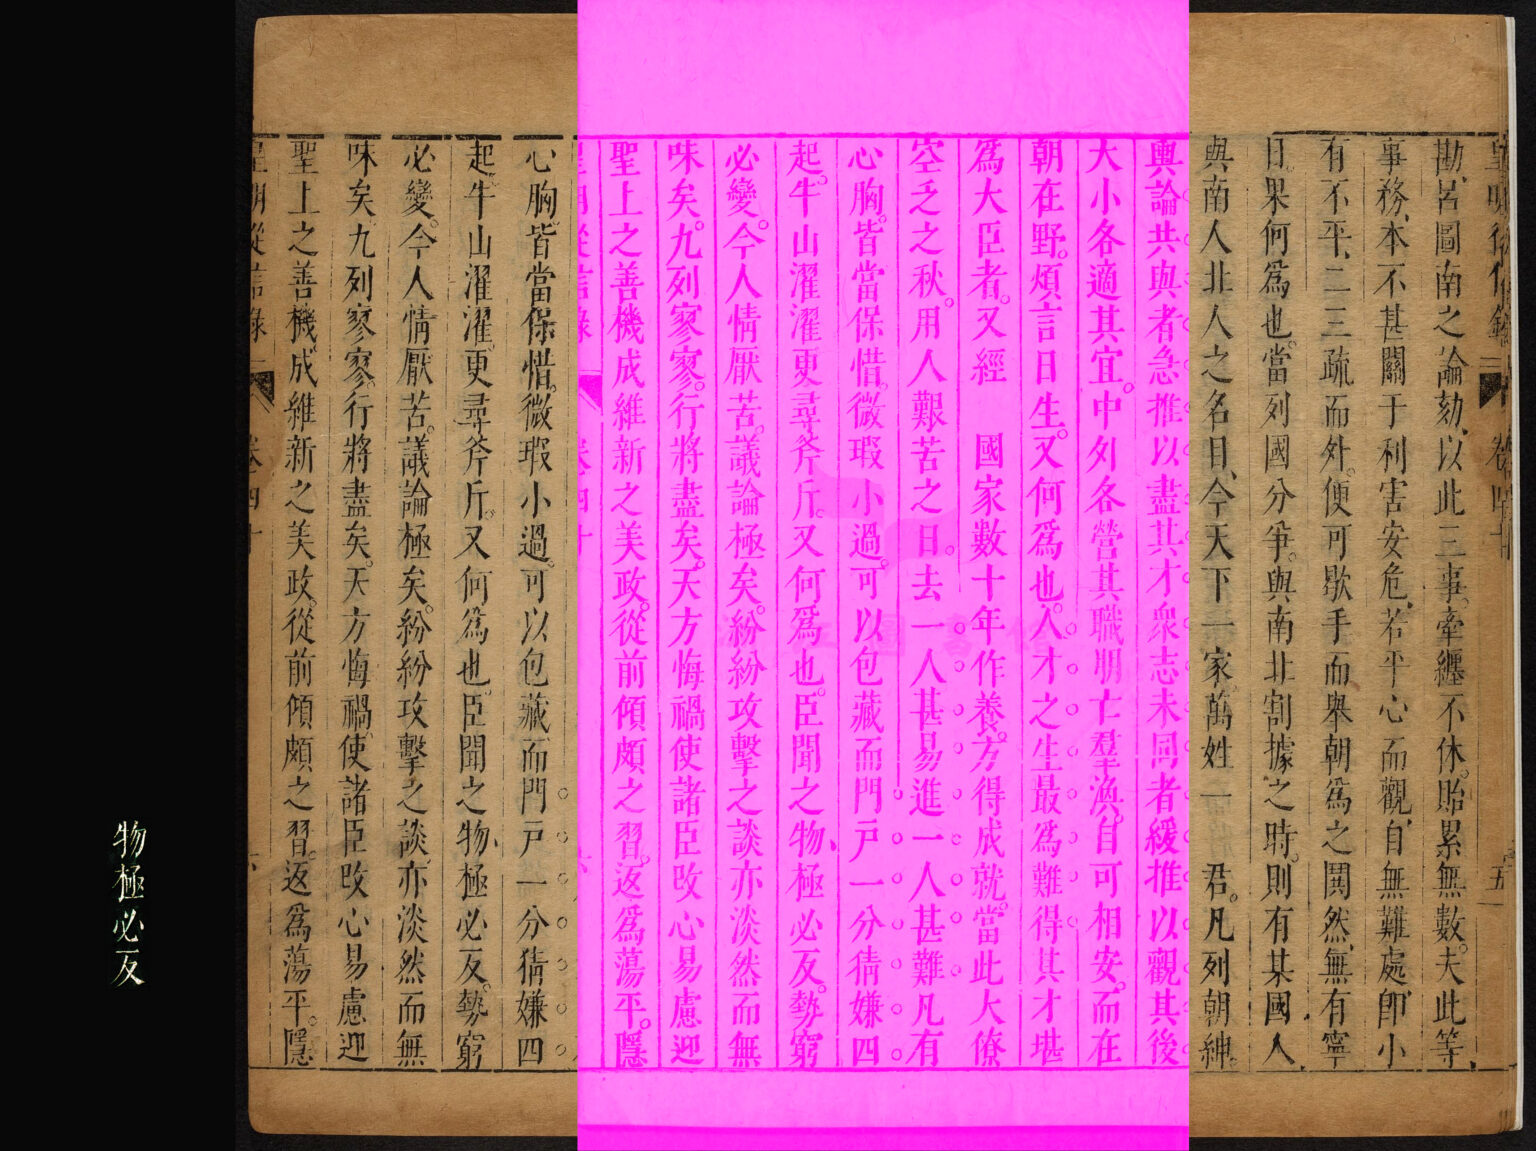 勘呂圖南之論劾以此三事牽纏不休貽累無數夫此等
事務本不甚關于利害安危若平心而觀自無難處卽小
有不平二三疏而外便可歇手而舉朝爲之鬨然無有寧
日果何爲也當列國分爭與南北割據之時則有某國人
與南人北人之名目今天下一家萬姓一 君凡列朝紳
輿論共與者急推以盡其才衆志未同者緩推以觀其後
大小各適其宜中外各營其職朋亡羣渙自可相安而在
朝在野煩言日生又何爲也人才之生最爲難得其才堪
爲大臣者又經 國家數十年作養方得成就當此大僚
空乏之秋用人艱苦之日去一人甚易進一人甚難凡有
心胸皆當保惜微瑕小過可以包藏而門戸一分猜嫌四
起牛山濯濯更尋斧斤又何爲也臣聞之物極必反勢窮
必變今人情厭苦議論極矣紛紛攻擊之談亦淡然而無
味矣九列寥寥行將盡矣天方悔禍使諸臣改心易慮迎
聖上之善機成維新之美政從前傾頗之習返爲蕩平隱
心胸皆當保惜微瑕小過可以包藏而門戸一分猜嫌四
起牛山濯濯更尋斧斤又何爲也臣聞之物極必反勢窮
必變今人情厭苦議論極矣紛紛攻擊之談亦淡然而無
味矣九列寥寥行將盡矣天方悔禍使諸臣改心易慮迎
聖上之善機成維新之美政從前傾頗之習返爲蕩平隱
物極必反